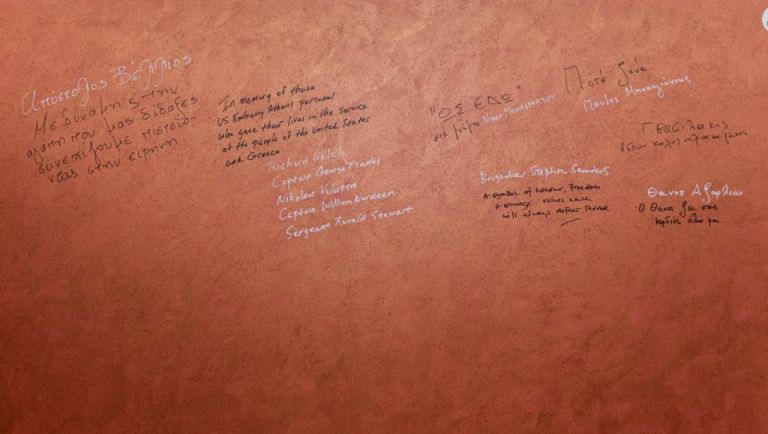 Απόστολος Βέλλιος
Με δύναμη ς την
αγάπη που μας δίδαξες
συνεχίζουμε πιστεύο-
ντας στην ειρήνη
In memory of those
US Embassy Athens personal
who gave their lives in the service
of the people of the United States
and Greece
Richard Welch
Captain George Tsantes
Nikolaos Veloutsos
Captain William Nordeen
Sergeant Ronald Stewart
"ΩΣ ΕΔΩ"
Ποτέ ξανά
Παύλος Μπακογιάννης
Brigadier Stephen Saunders
A symbol of honour, Freedom
+ courage values which
will always defeat terror
Θάνος Αξαρλιάν
Ο Θάνος ζει στις
καρδιές όλων μας